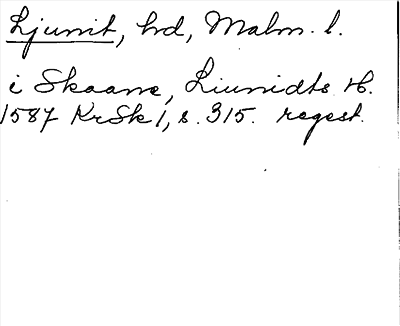 Ljunit, hd, Malm. l.
i Skaane, Liunidts H.
1587 KrSk 1, s. 315. regest.